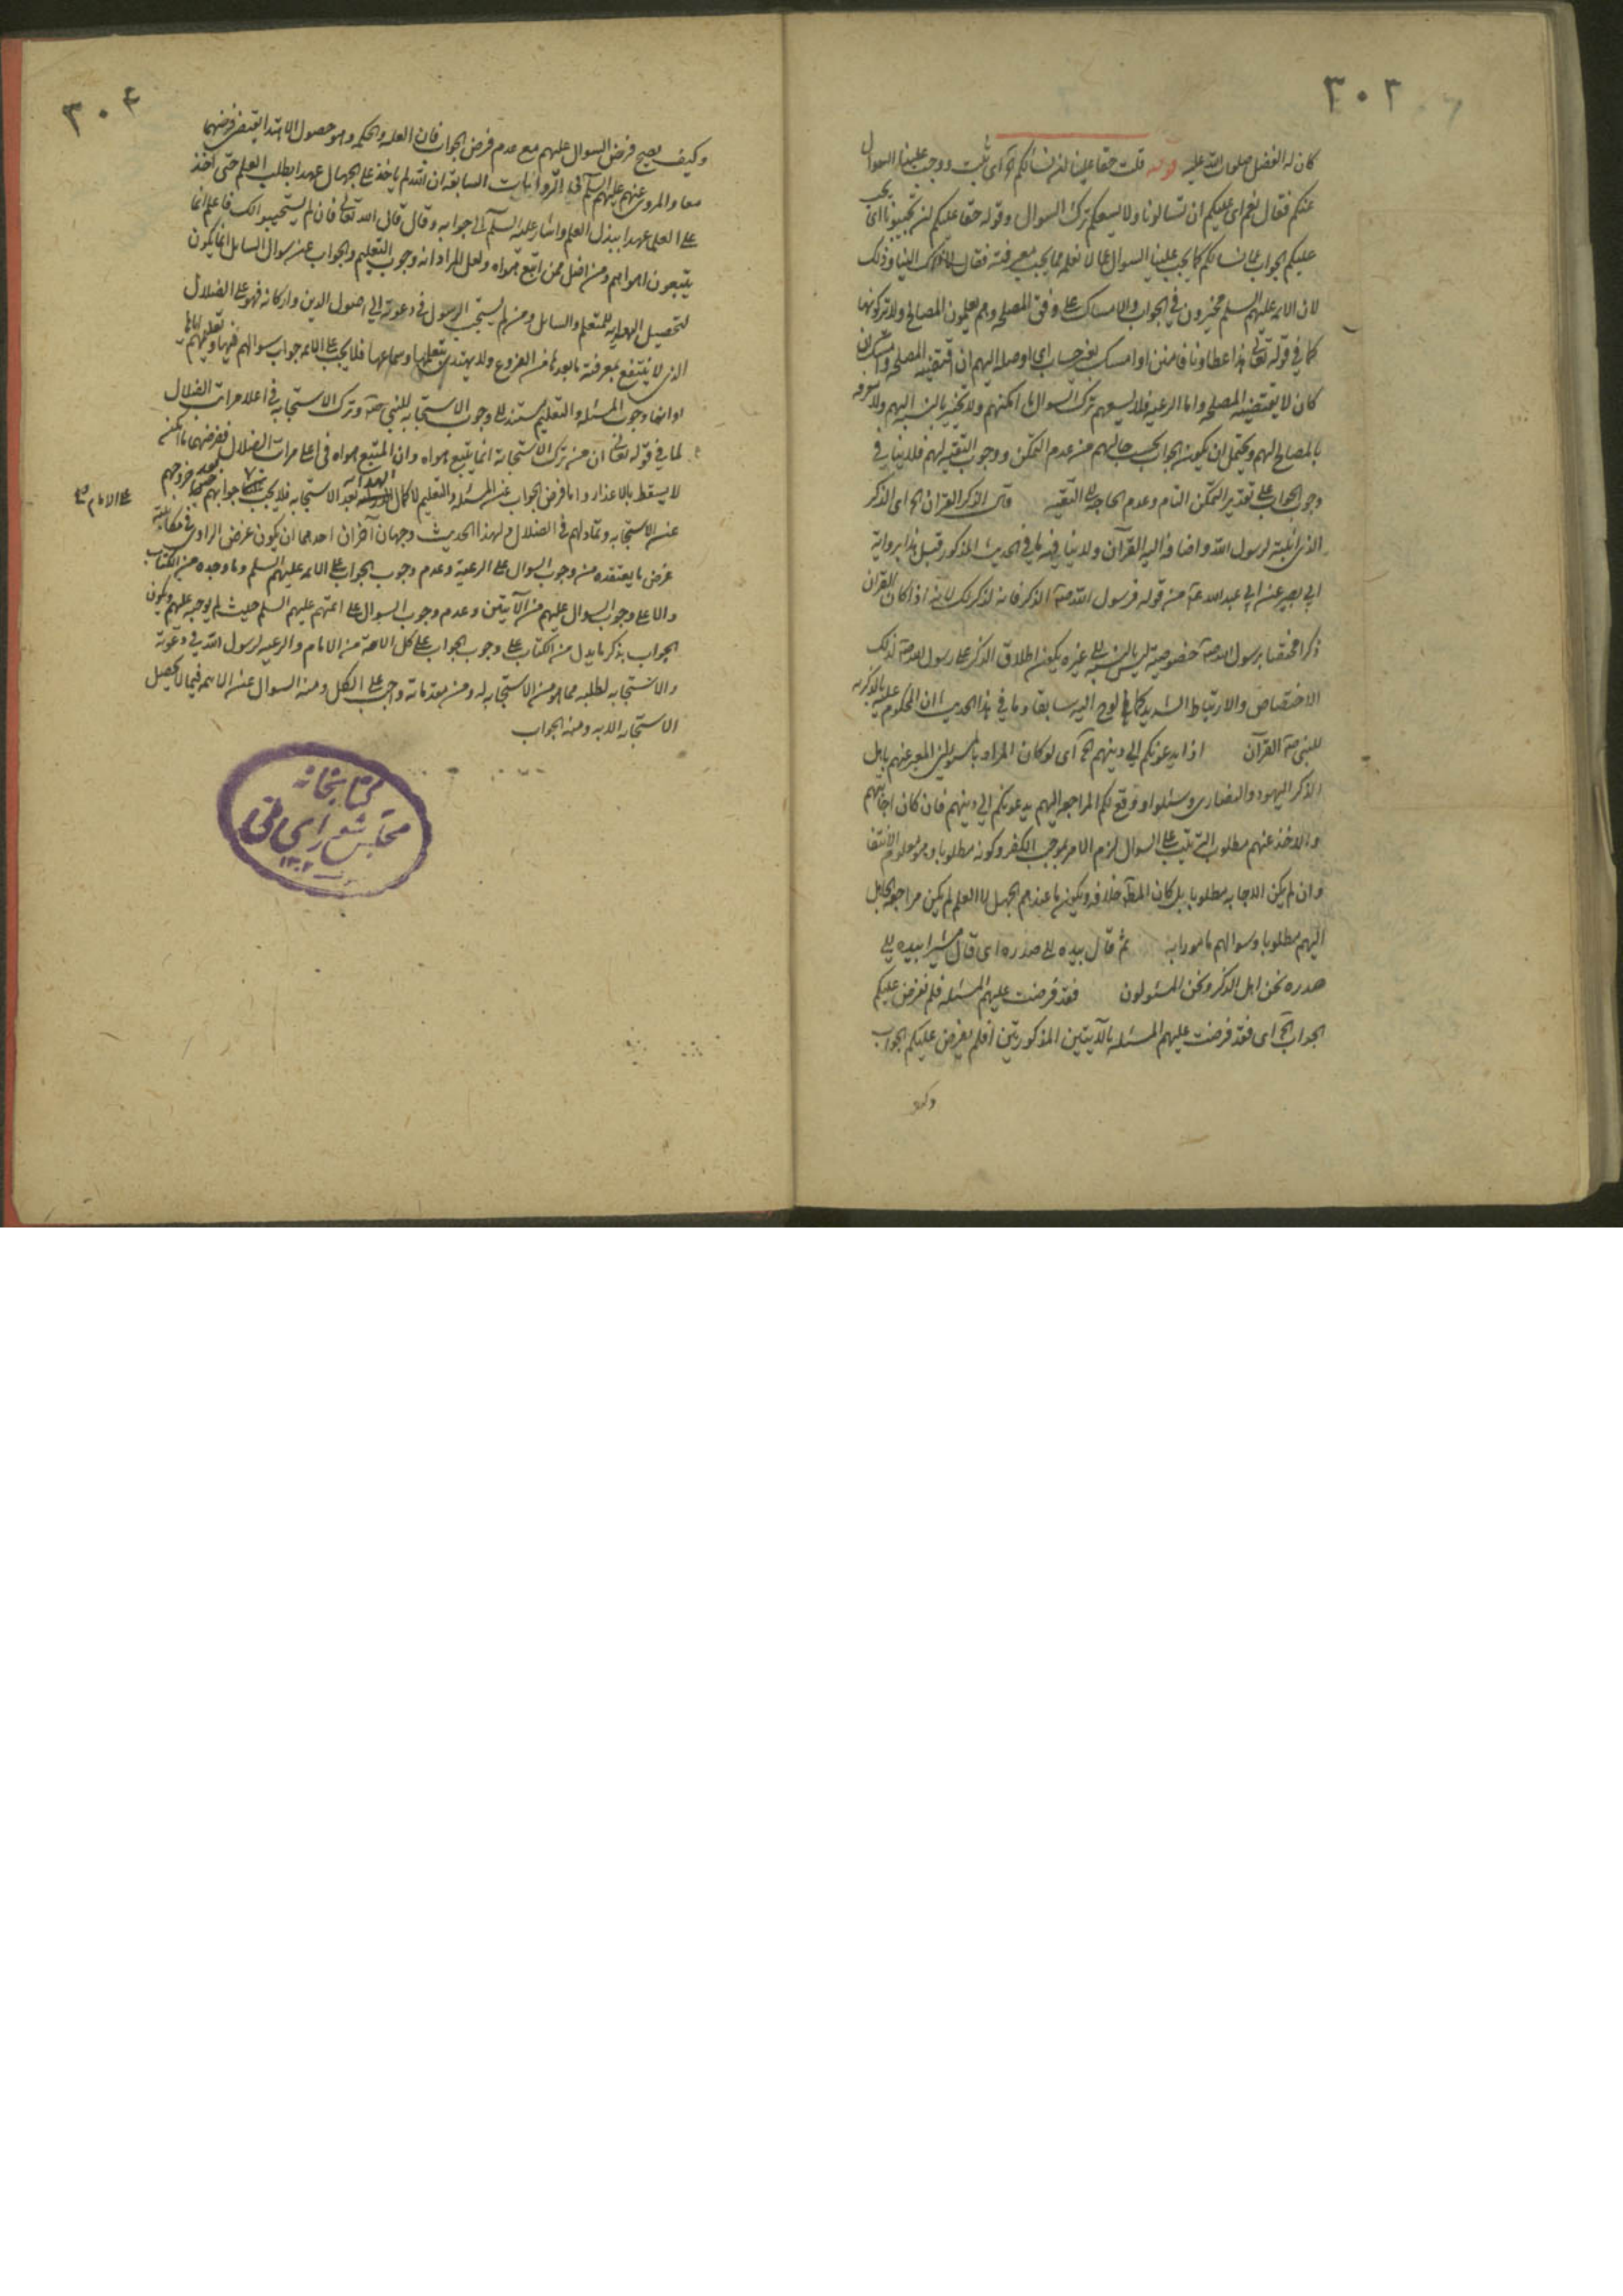 ٣٠٢
كان له الفضل صلوات الله عليه قوله قلت حقا علينا ان نسألكم آه اى ثبت ووجب علينا السوال
عنكم فقال نعم اى عليكم ان تسالونا ولا يسعكم ترك السوال وقوله حقا عليكم ان تجيبونا اى يجب
عليكم الجواب عما نسالكم كما يجب علينا السوال عما لا نعلم مما يجب معرفته فقال لا ذاك الينا وذلك
لان الائمه عليهم السلم مخيرون فى الجواب والامساك على وفق المصلحه وهم يعلمون المصالح ولا تركونها
كما فى قوله تعالى هذا عطاونا فامنن او امسك بغير حساب اى اوصله اليهم ان اقتضته المصلحه وامسك ان
كان لا يقتضيه المصلحه واما الرعيه فلا يسعهم ترك السوال ما امكنهم ولا تخيير بالنسبه اليهم ولا معرفه
بالمصالح لهم ويحتمل ان يكون الجواب بحسب حالهم من عدم التمكن ووجوب التقيه لهم فلا ينافى
وجوب الجواب على تقدير التمكن التام وعدم الحاجه الى التقيه قال الذكر القران آه اى الذكر
الذى اثبته لرسول الله واضافه اليه القرآن ولا ينافيه ما فى الحديث المذكور قبل هذا برواية
ابى بصير عن ابى عبدالله عـ من قوله فرسول الله صـ الذكر فانه لذكر لك لانه اذا كان القران
ذكرا مختصا برسول الله صـ خصوصية ليس بالنسبه الى غيره يكون اطلاق الذكر على رسول الله صـ لذلك
الاختصاص والارتباط الشديد كما لوح اليه سابقا وما فى هذا الحديث ان المحكوم عليه بالذكريه
للنبى صـ القرآن اذا يدعونكم الى دينهم آه اى لو كان المراد بالمسئولين المعبر عنهم باهل
الذكر اليهود والنصارى وسئلوا ووقع لكم المراجعه اليهم يدعونكم الى دينهم فان كان اجابتهم
والاخذ عنهم مطلوب الترتب على السوال لزم الامر بموجب الكفر وكونه مطلوبا وهو معلوم الانتفا
وان لم يكن الاجابه مطلوبا بل كان المط خلافه ويكون ما عندهم الجهل لا العلم لم يكن مراجعه الجاهل
اليهم مطلوبا وسوالهم مامورا به ثم قال بيده الى صدره اى قال مشيرا بيده الى
صدره نحن اهل الذكر ونحن المسئولون فقد فرضت عليهم المسئله فلم نفرض عليكم
الجواب آه اى فقد فرضت عليهم المسئله بالآيتين المذكورتين افلم يفرض عليكم الجواب
وكيف
٣٠٤
وكيف يصح فرض السوال عليهم مع عدم فرض الجواب فان العله والحكم وهو حصول الاهتدا يقتضى فرضهما
معا والمروى عنهم عليهم السلم فى الروايات السابقه ان الله لم ياخذ على الجهال عهدا بطلب العلم حتى اخذ
على العلما عهدا ببذل العلم واشار عليه السلم الى جوابه وقال قال الله تعالى فان لم يستجيبوا لك فاعلم انما
يتبعون اهواءهم ومن اضل ممن اتبع هواه ولعل المراد انه وجوب التعليم والجواب عن سوال السايل انما يكون
لتحصيل الهدايه للمتعلم والسايل ومن لم يستجب الرسول فى دعوته الى اصول الدين واركانه فهو على الضلال
الذى لا ينتفع بمعرفة ما بعد ها من الفروع ولا يهتدى بتعلمها وسماعها فلا يجب على الائمه جواب سوالهم فيها وتعليمهم اياها
او انما وجوب المسئله والتعليم مستند الى وجوب الاستجابه للنبى صـ وترك الاستجابه فى اعلا مراتب الضلال
لما فى قوله تعالى ان من ترك الاستجابة انما يتبع هواه وان المتبع هواه فى اعلى مراتب الضلال ففرضهما ما امكن
لا يسقط بالاعذار واما فرض الجواب عن المسئله والتعليم لاكمال الهداية بعد الاستجابه فلا يجب على الامام جوابهم بعد خروجهم
عن الاستجابه وتمادلهم فى الضلال ولهذا الحديث وجهان آخران احدهما ان يكون غرض الراوى فى حكايته
عرض ما يعتقده من وجوب السوال على الرعية وعدم وجوب الجواب على الائمه عليهم السلم وما وجده من الكتاب
دالا على وجوب السوال عليهم من الآيتين وعدم وجوب السوال على ائمتهم عليهم السلم حيث لم يوجبه عليهم ويكون
الجواب بذكر ما يدل من الكتاب على وجوب الجواب على كل الامة من الامام والرعيه لرسول الله فى دعوته
والاستجابه لطلبه مما هو من الاستجابه له ومن مقدماته واجب على الكل ومنه السوال عن الاهم فيما لا يحصل
الاستجابه الا به ومنه الجواب
كتابخانه
مجلس شوراى ملى
١٣٠٢